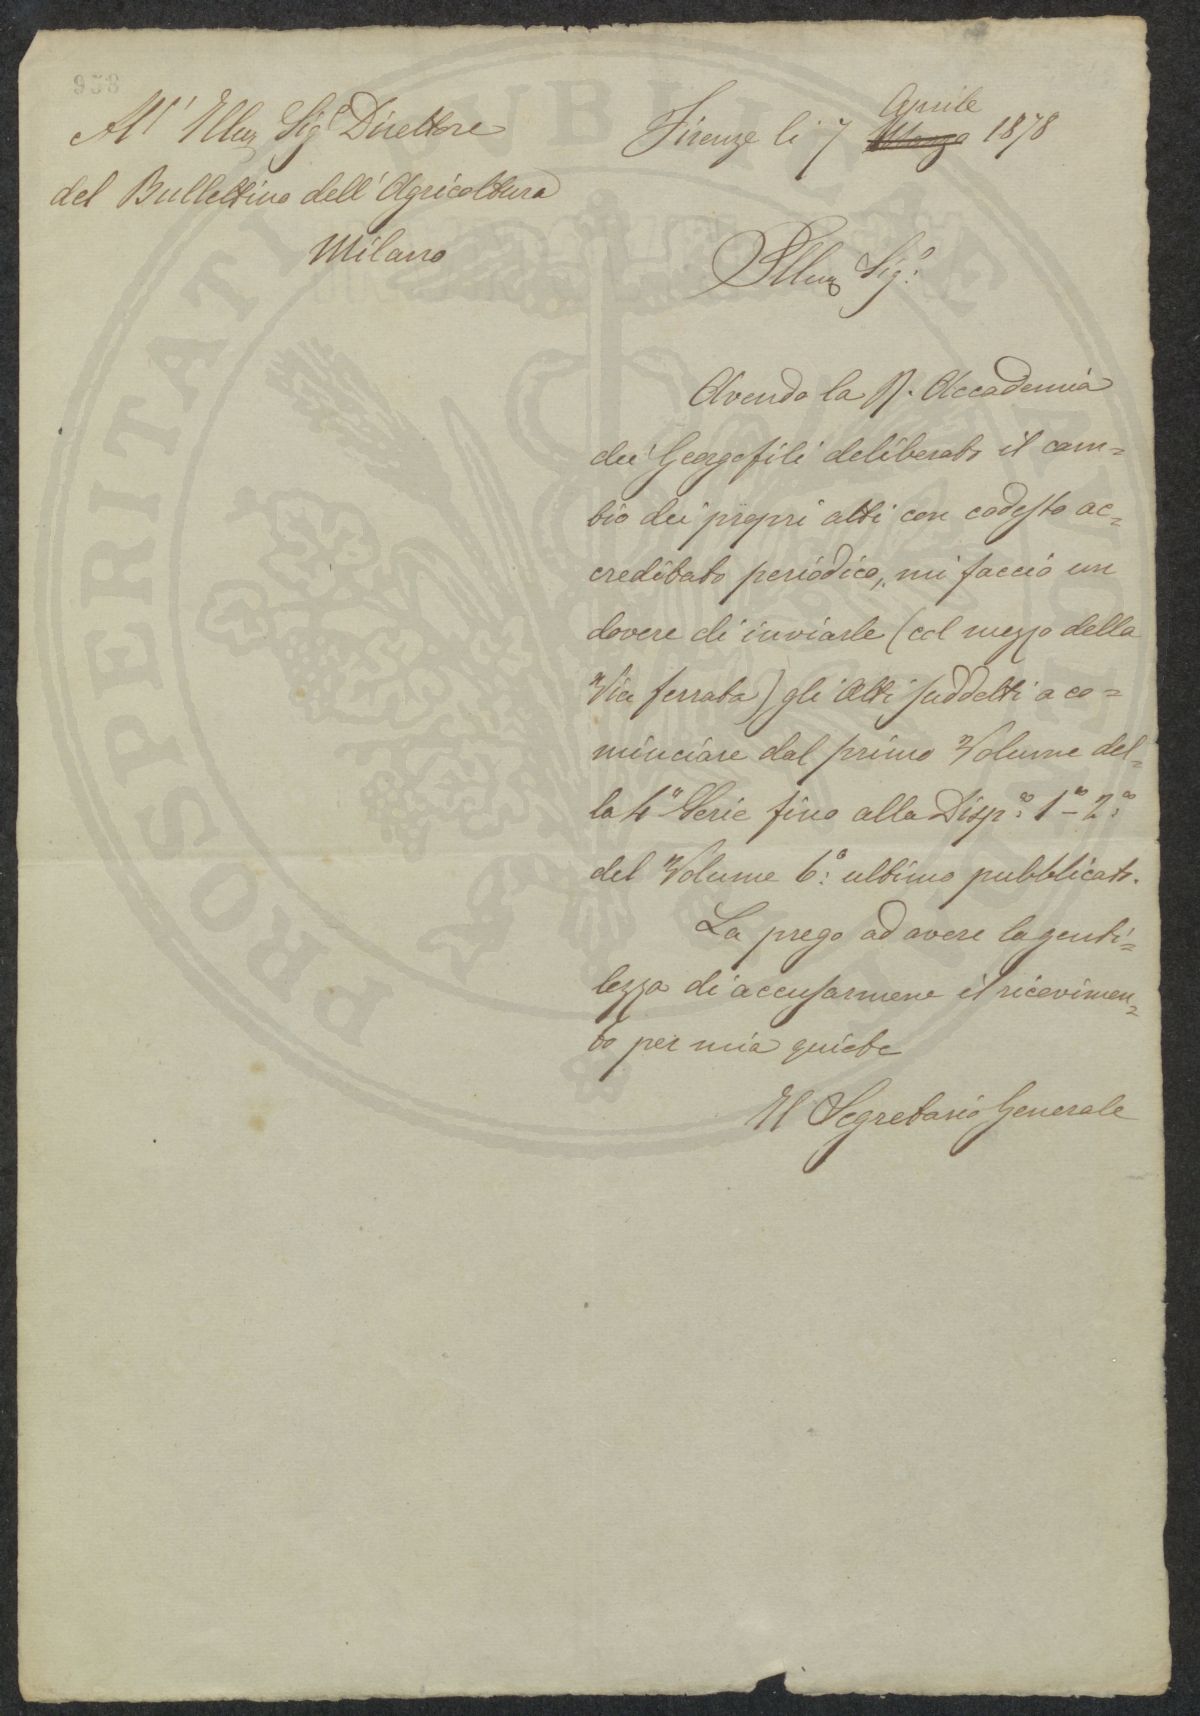 958
All' Illmo Sigr Direttore
del Bullettino dell'Agricoltura
Milano
Firenze li 7 Marzo Aprile 1878
Illmo Sigr:
Avendo la R. Accademia
dei Georgofili deliberato il cam=
bio dei propri atti con codesto ac=
creditato periodico, mi faccio un
dovere di inviarle (col mezzo della
Via ferrata) gli Atti suddetti a co=
minciare dal primo Volume del=
la 4a Serie fino alla Dispa: 1a - 2a:
del Volume 6o: ultimo pubblicato.
La prego ad avere la genti=
lezza di accusarmene il ricevimen=
to per mia quiete
Il Segretario Generale
PROSPERITATI PUBLICAE AUGENDAE